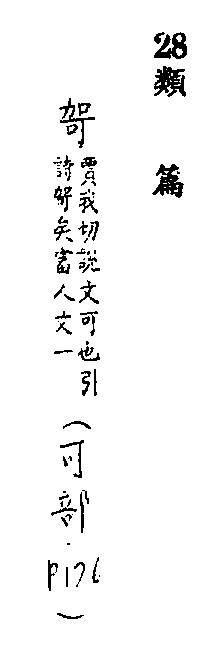 28類篇
哿
賈我切說文可也引
詩哿矣富人文一
(可部.P176)